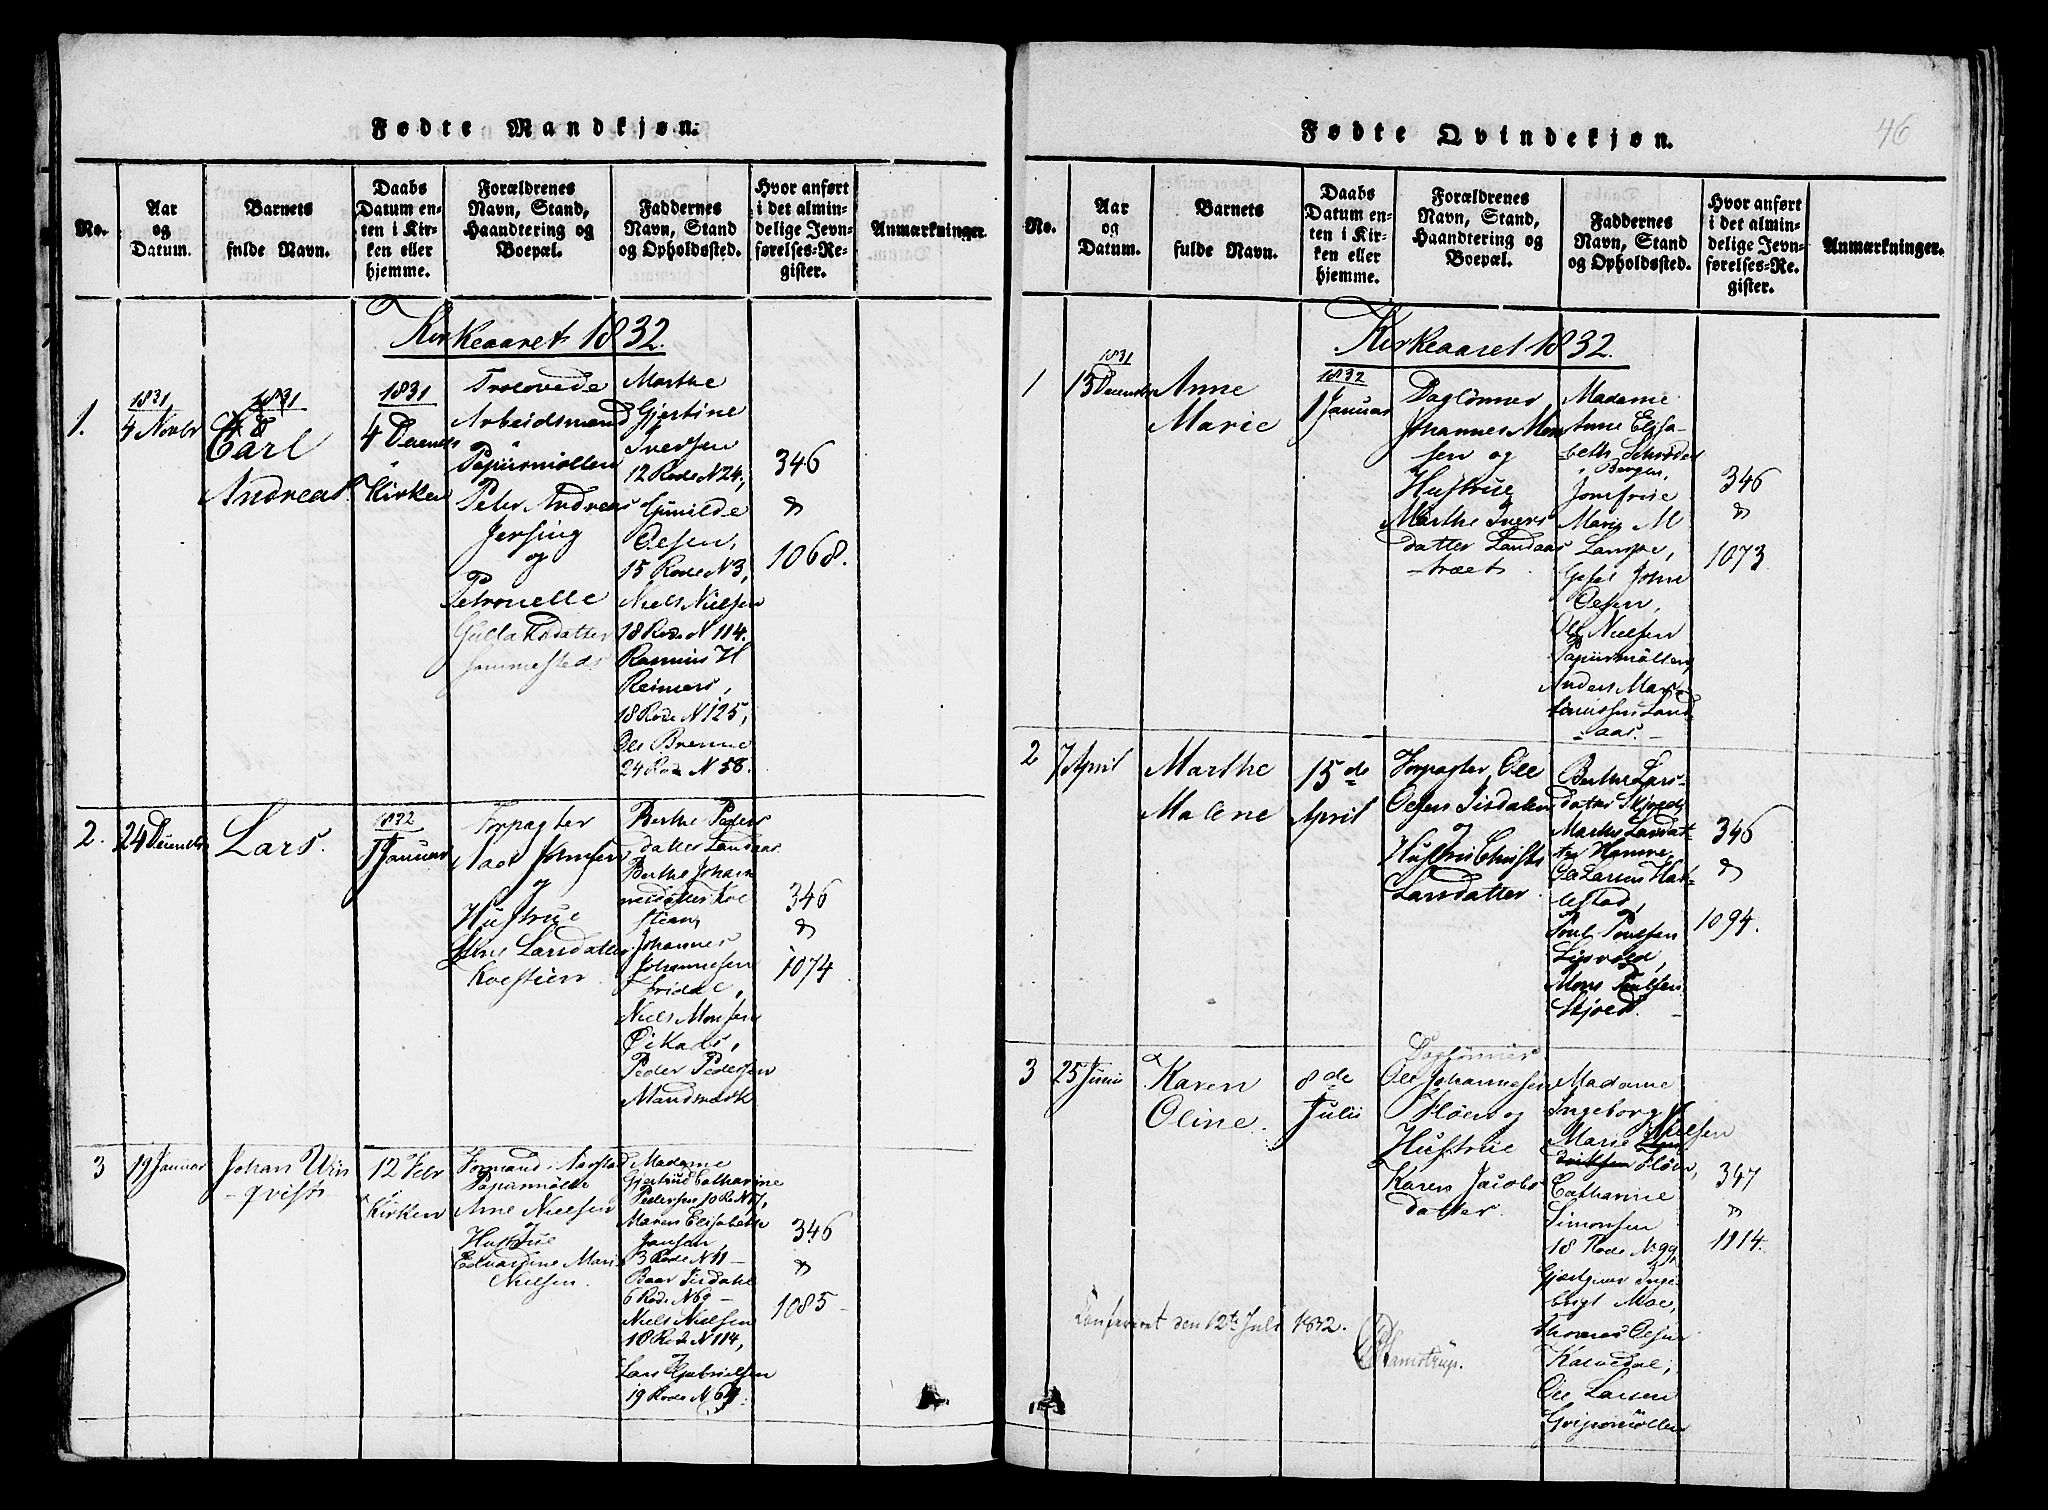 Fødte Mandkjøn.
No.
Aar
og
Datum.
Barnets
fulde Navn.
Daabs
Datum en-
ten i Kir-
ken eller
hjemme.
Forældrenes
Navn, Stand,
Haandtering og
Boepæl.
Faddernes
Navn, Stand
og Opholdssted.
Hvor anført
i det almin-
delige Jevn-
førelses-Re-
gister.
Anmærkninger.
Kirkeaaret 1832.
1.
1831
4 Novbr
1831
Carl
Andreas
1831
4 Decembr
i Kirken
Trolovede
Arbeidsmand
Papiirmøllen
Peter Andreas
Jersing
og
Petronelle
Gullaksdatter
Marthe
Gjertine
Iversen
12 Rode N 24,
Gunilde
Olsen,
15 Rode N 3,
Niels Nielsen
18 Rode N 114.
Rasmus H
Reimers,
18 Rode N 125,
Ole Brenne
24 Rode N 58.
346
&
1068.
2.
24 Decembr
Lars.
1832
1 Januar
Forpagter
Johnsen
og
Hustrue
Larsdatter
Kolstien
Berthe Peders
datter Landaas
Berthe Johan
nesdatter Kol
stien,
Johannes
Johannesen
Fridal,
Niels Monsen
Peder Pedersen
Mandsværk
346
&
1074
3
19 Januar
Johan Urin
-qvist
12 Febr
i Kirken
Formand i
Papiirmølle
Arne Nielsen
og
Hustrue
Edvardine Mari
Nielsen.
Madame
Gjertrud Catharine
Pedersen 10 Ro N 17,
Maren Elisabeth
Jansen,
3 Rode N 11 -
Baar Tirsdahl
6 Rode N 69 -
Niels Nielsen
18 Rode N 114,
Lars Gabrielsen
19 Rode N 69.
346
&
1085
Fødte Qvindekjøn.
46
No.
Aar
og
Datum.
Barnets
fulde Navn.
Daabs
Datum en-
ten i Kir-
ken eller
hjemme.
Forældrenes
Navn, Stand,
Haandtering og
Boepæl.
Faddernes
Navn, Stand
og Opholdssted.
Hvor anført
i det almin-
delige Jevn-
førelses-Re-
gister.
Anmærkninger.
Kirkeaaret 1832.
1
1831
13 Decembr
Anne
Marie
1832
1 Januar
Daglønner
Johannes Mon
sen og
Hustrue
Marthe Ivers
datter Landaas
-træet
Madame
Anne Elisa-
beth Schrøder
i Bergen,
Jomfrue
Marie M
Gesel John
Olsen,
Ole Nielsen
Papiirmøllen,
Anders Mar-
tinussen Land
-aas.-
346
&
1073
2
7 April
Marthe
Malene
15de
April
Forpagter Ole
Olsen Tirsdalen
og
Hustrue Christi
Larsdatter
Berthe Lars-
datter Skjold,
Marthe Larsdat-
ter Hamre,
Ole Larsen Hat-
lestad,
Poul Poulsen
Mons Poulsen
Skjold.
346
&
1094.
3
25 Junii
Karen
Oline.
8de
Julii
Daglønner
Ole Johannesen
Fløen og
Hustrue
Karen Jacobs
datter.
Madame
Ingeborg
Marie Nielsen
Fløen,
Catharine
Simonsen
18 Rode N 99,
Gjæstgiver Inge-
brigt Moe,
Thomas Olsen
Kalvedal,
Ole Larsen
Gripsmøllen
347
&
1114.
Confereret den 12te Juli 1832.